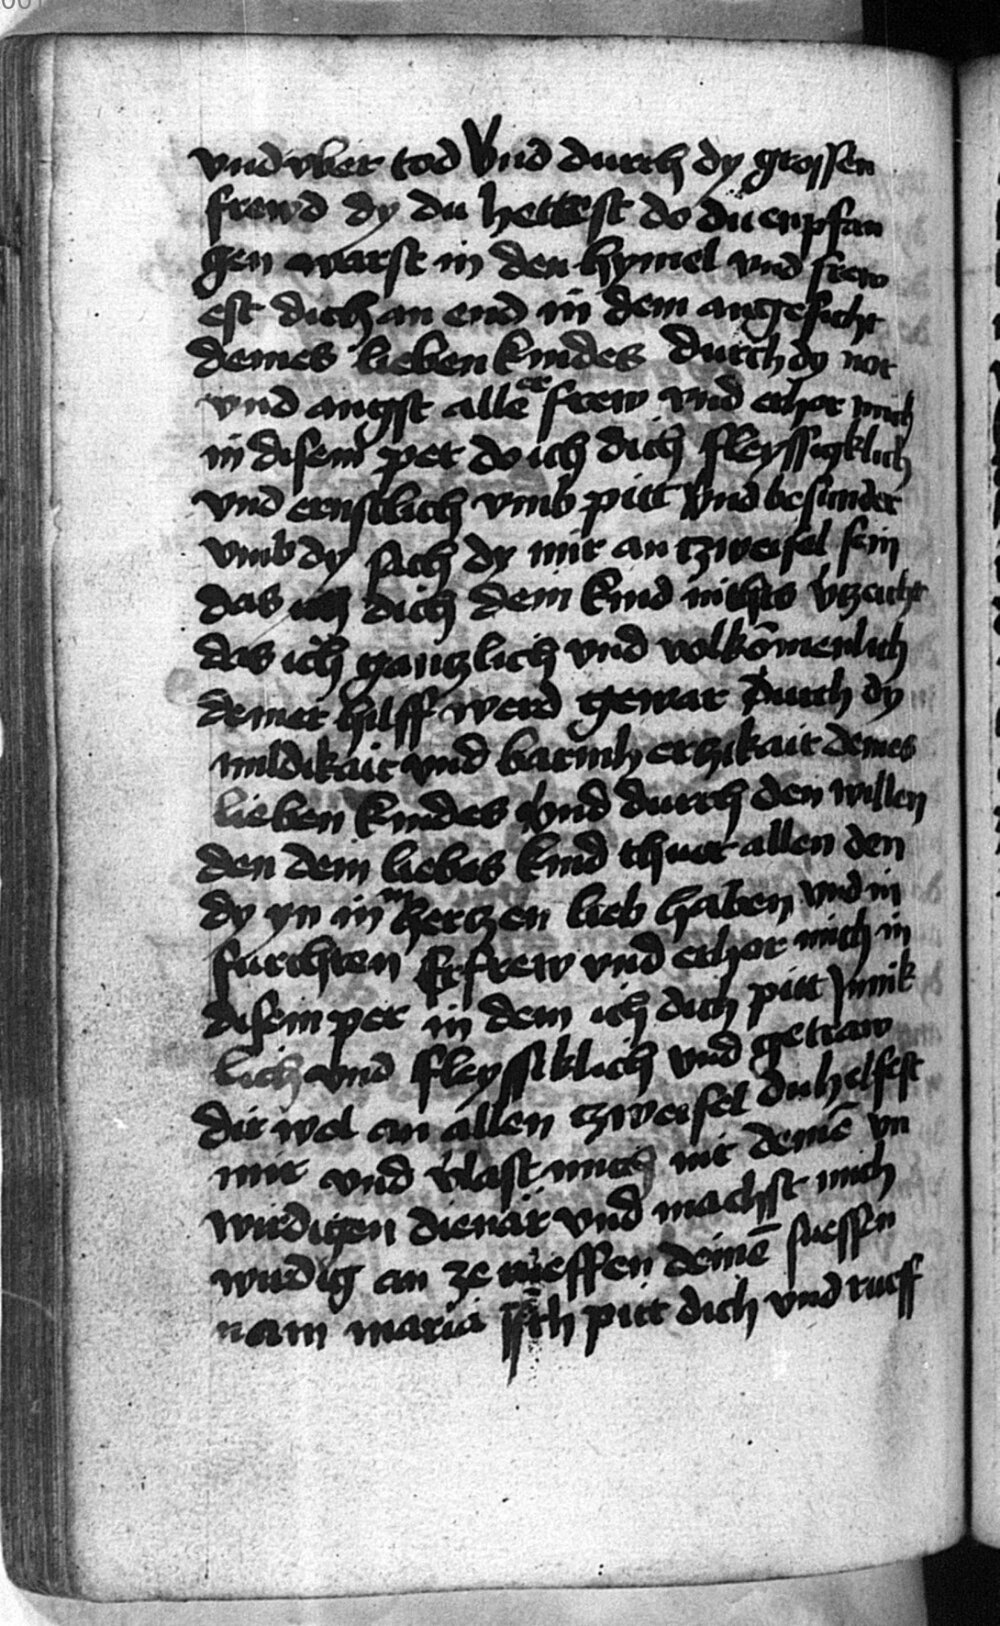 vnd vber tod Vnd durch dy grossen
frewd dy du hettest do du enpfan
gen warst in den hymel vnd frew
est dich an end in dem angesicht
deines lieben kindes durch dy not
vnd angst alle er frew vnd erhor mich
in disem pet do ich dich fleyssigklich
vnd ernstlich vmb pitt Vnd besunder
vmb dy sach dy mir an tzweifel sein
das ich dich dein kind nichts
das ich gantzlich vnd volkōmenlich
deiner hilff werd gewar Durch dy
mildikait vnd barmhertzikait deines
lieben kindes Vnd durch den willen
den dein liebes kind thuet allen den
dy yn in hertzen lieb haben vnd in
furchten Erfrew vnd erhor mich in
disem pet in dem ich dich pitt Innik
lich vnd fleyssiklich vnd getraw
dir wol an allen tzweifel du helfest
mir vnd vlast mich nit deinē vn
wirdigen dienar vnd machst mich
wirdig an ze rueffen deinē suessen
nam maria Ich pitt dich vnd rueff